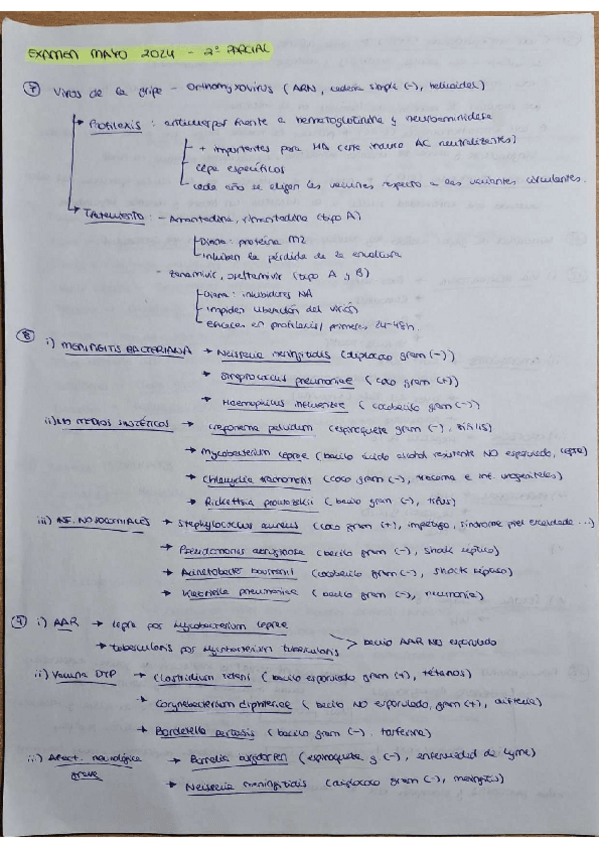 EXAMEN MAYO 2024 - 2º PARCIAL
⑦ Virus de la gripe - Orthomyxovirus (ARN, cadena simple (-), helicoidal)
→ Profilaxis : anticuerpos frente a hemaglutinina y neuraminidasa
+ importantes para HA (este induce AC neutralizantes)
cepa específicos
cada año se eligen las vacunas respecto a las variantes circulantes.
→ Tratamiento : - Amantadina, rimantadina (tipo A)
Diana : proteína M2
inhiben la pérdida de la envoltura
- Zanamivir, oseltamivir (tipo A y B)
Diana : inhibidores NA
impiden liberación del virión
eficaces en profilaxis / primeras 24-48h.
⑧ i) MENINGITIS BACTERIANA → Neisseria meningitidis (diplococo gram (-))
→ Streptococcus pneumoniae ( coco gram (+))
→ Haemophilus influenzae ( cocobacilo gram (-))
ii) NO MEDIOS SINTÉTICOS → Treponema pallidum (espiroqueta gram (-), sífilis)
→ Mycobacterium leprae (bacilo ácido alcohol resistente NO esporulado, lepra)
→ Chlamydia trachomatis (coco gram (-), tracoma e inf. urogenitales)
→ Rickettsia prowazekii ( bacilo gram (-), tifus)
iii) INF. NOSOCOMIALES → Staphylococcus aureus ( coco gram (+), impétigo, síndrome piel escaldada ...)
→ Pseudomonas aeruginosa ( bacilo gram (-), shock séptico)
→ Acinetobacter baumanii (cocobacilo gram (-), shock séptico)
→ Klebsiella pneumoniae ( bacilo gram (-), neumonía)
⑨ i) AAR → lepra por Mycobacterium leprae
→ tuberculosis por Mycobacterium tuberculosis > bacilo AAR NO esporulado
ii) Vacuna DTP → Clostridium tetani ( bacilo esporulado gram (+), tétanos)
→ Corynebacterium diphteriae ( bacilo NO esporulado, gram (+), difteria)
→ Bordetella pertussis ( bacilo gram (-). tosferina)
iii) Afect. neurológica grave → Borrelia burgdorferi (espiroqueta g (-), enfermedad de Lyme)
→ Neisseria meningitidis (diplococo gram (-), meningitis)